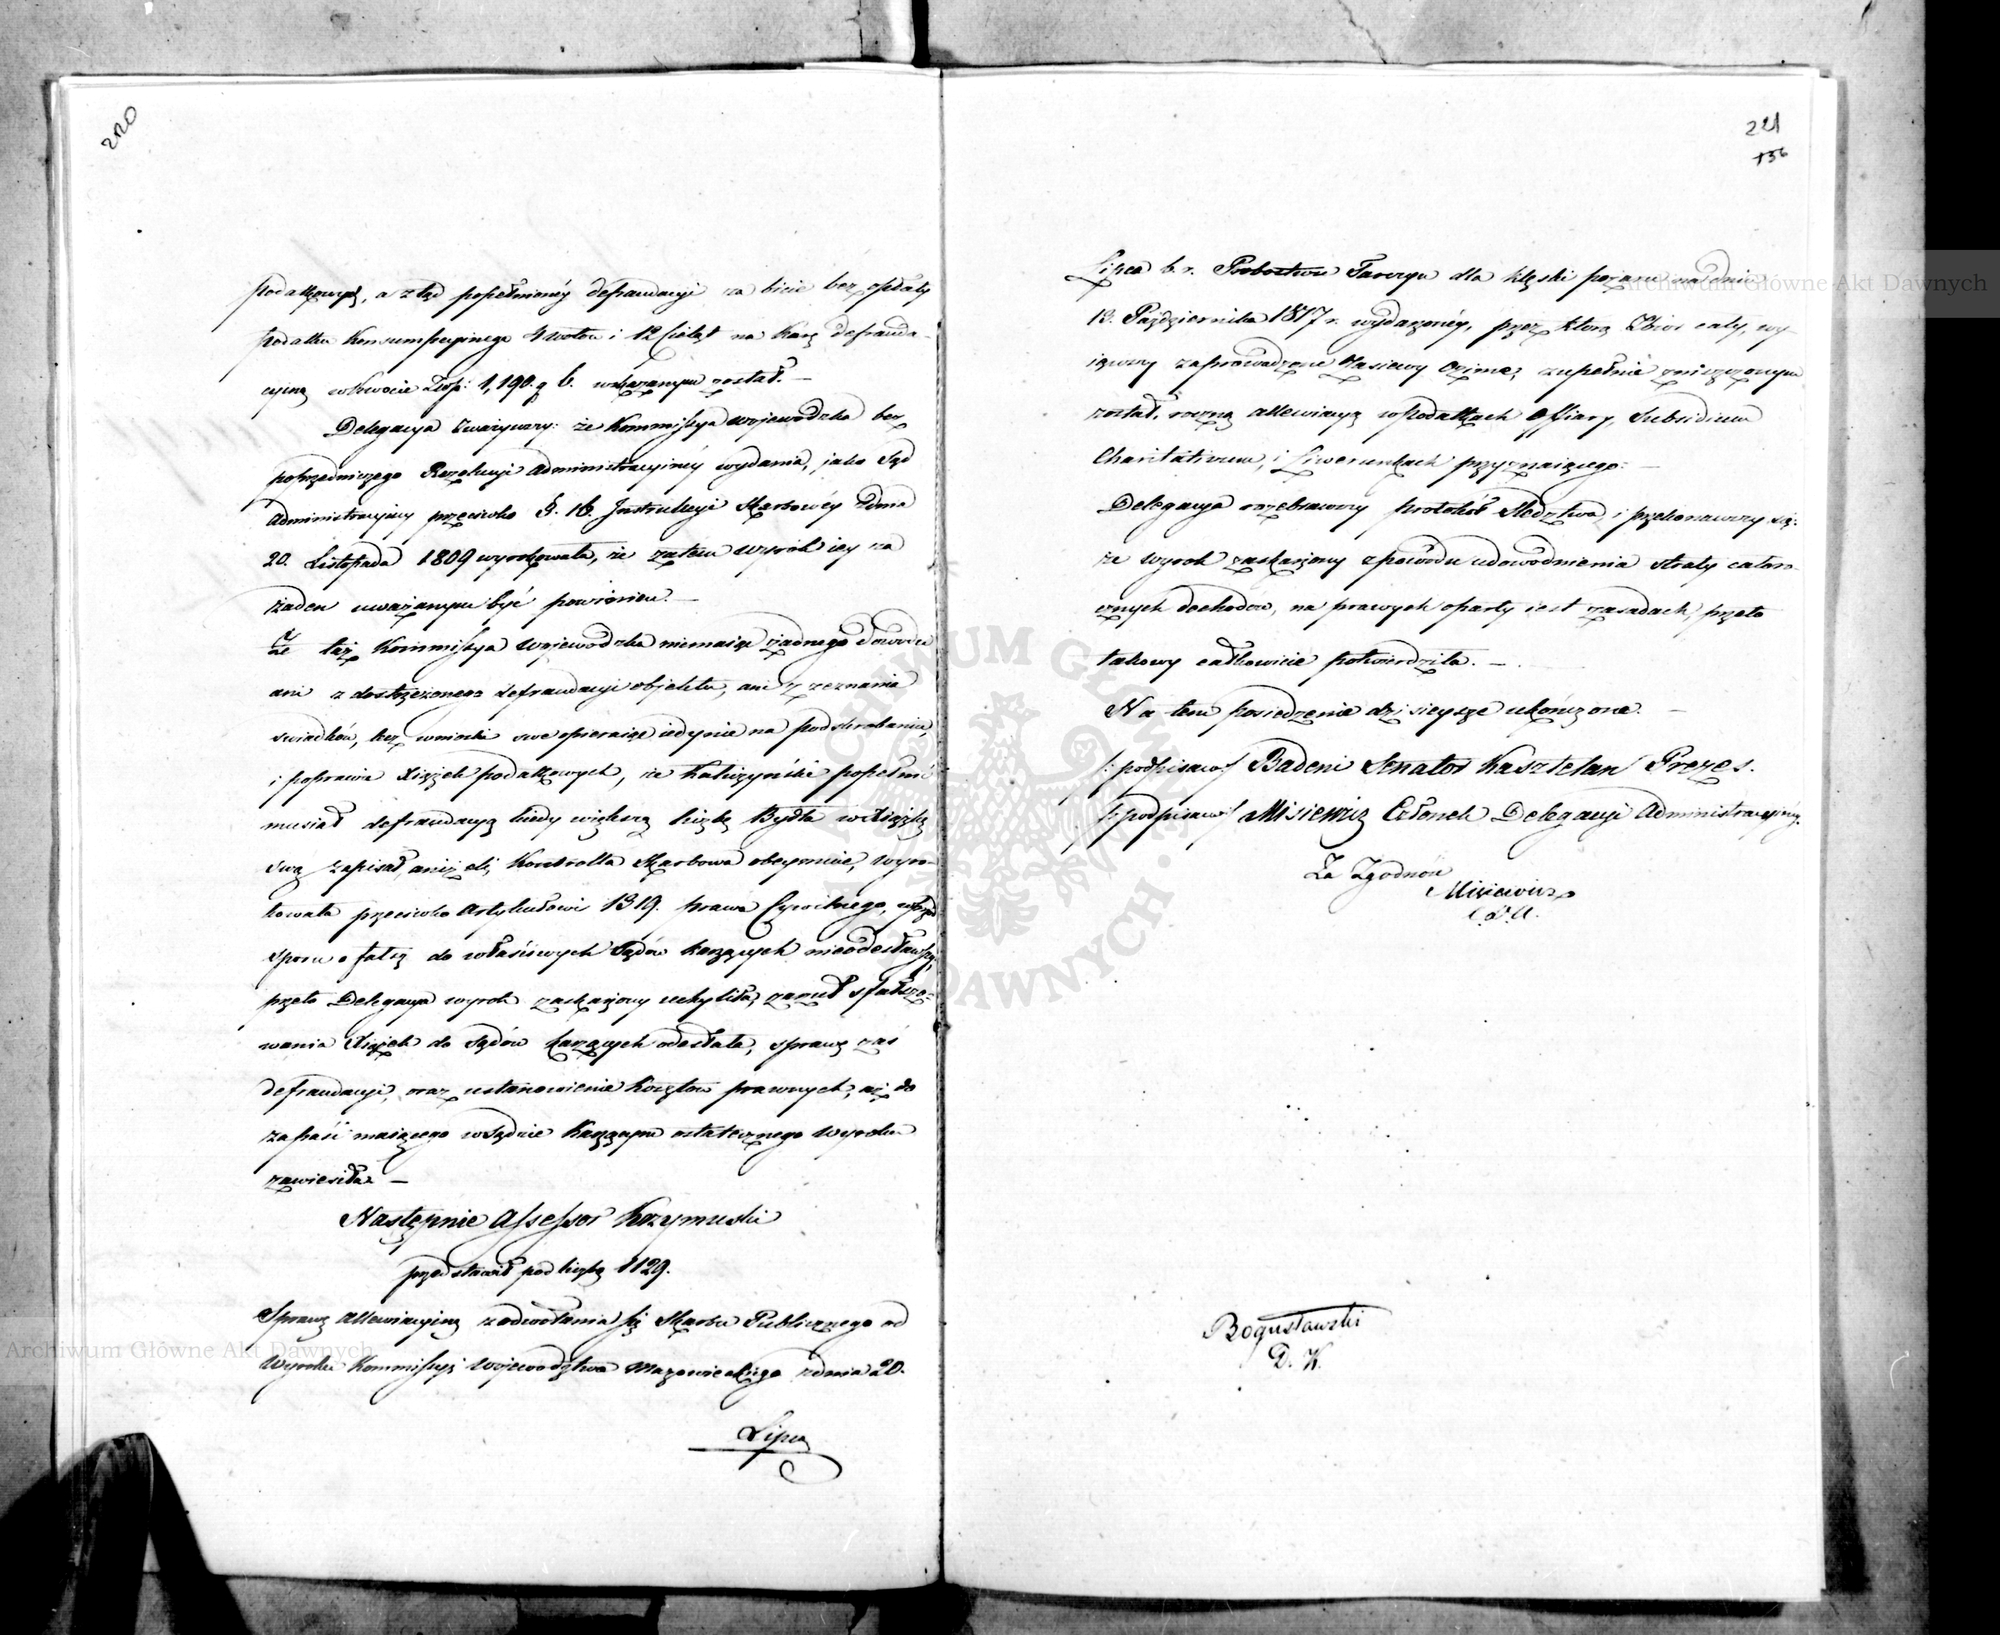 220
podatkowych, a ztąd popełnionéy defraudacyi za bicie bez opłaty
podatku Konsumpcyinego 4 wołów i 12 Cieląt na karę defrauda-
cyiną w kwocie Złp: 1,190. g 6. wskazanym został. —
Delegacya zważywszy: że Kommissya wojewódzka bez
poprzedniczego Rezolucyi Administracyinéy wydania, jako Sąd
Administracyiny przeciwko §. 16. Instrukcyi Skarbowéy zdnia
20. Listopada 1809 wyrokowała, że zatem wyrok iey za
żaden uważanym być powinien. —
Że taż Kommissya Wojewódzka niemaiąc żadnego dowodu
ani z dostrzeżonego defraudacyi objektu, ani z zeznania
świadków, lecz wnioski swe opieraiąc jedynie na podskrobaniu,
i poprawie Xiążek podatkowych, że Kaliszyński popełnić
musiał defraudacyą kiedy większą liczbę Bydła w Xiążkę
swą zapisał, aniżeli Kontrolla Skarbowa obeymuie, wyro-
kowała przeciwko Artykułowi 1319. prawa Cywilnego, wprzód
sporu o fałsz do właściwych Sądów karzących nieodesławszy,
przeto Delegacya wyrok zaskarżony uchyliła, zarzut sfałszo-
wania Xiążek do Sądów karzących odesłała, sprawę zaś
defraudacyi, oraz ustanowienie kosztów prawnych, aż do
zapaść maiącego w Sądzie Karzącym ostatecznego Wyroku
zawiesiła. —
Następnie Assessor Krzymuski
przedstawił pod liczbą 1129.
Sprawę allewiacyiną z odwołania się Skarbu Publicznego od
Wyroku Kommissyi Województwa Mazowieckiego zdnia 20.
Lipca
221
136
Lipca b. r. Probostwu Tarczyn dla klęski pożaru na dniu
13. Października 1817 r. wydarzonéy, przez którą Zbior cały, wy-
iąwszy zaprowadzone Zasiewy Ozime, zupełnie zniszczonym
został, roczną allewiacyą w podatkach Offiary, Subsidium
Charitativum, i Liwerunkach przyznaiącego: —
Delegacya rozebrawszy protokół Sledztwa, i przekonawszy się:
że wyrok zaskarżony z powodu udowodnienia straty całoro-
cznych dochodów, na prawych oparty iest zasadach, przeto
takowy całkowicie potwierdziła. —
Na tem posiedzenie dzisieysze ukończone. —
/: podpisano/ Badeni Senator Kasztelan Prezes.
/: podpisano/ Misiewicz Członek Delegacyi Administracyinéy.
Za Zgodność
Misiewicz
C. D. A.
Bogusławski
D. K.
Archiwum Główne Akt Dawnych
Archiwum Główne Akt Dawnych
ARCHIWUM GŁÓWNE AKT DAWNYCH